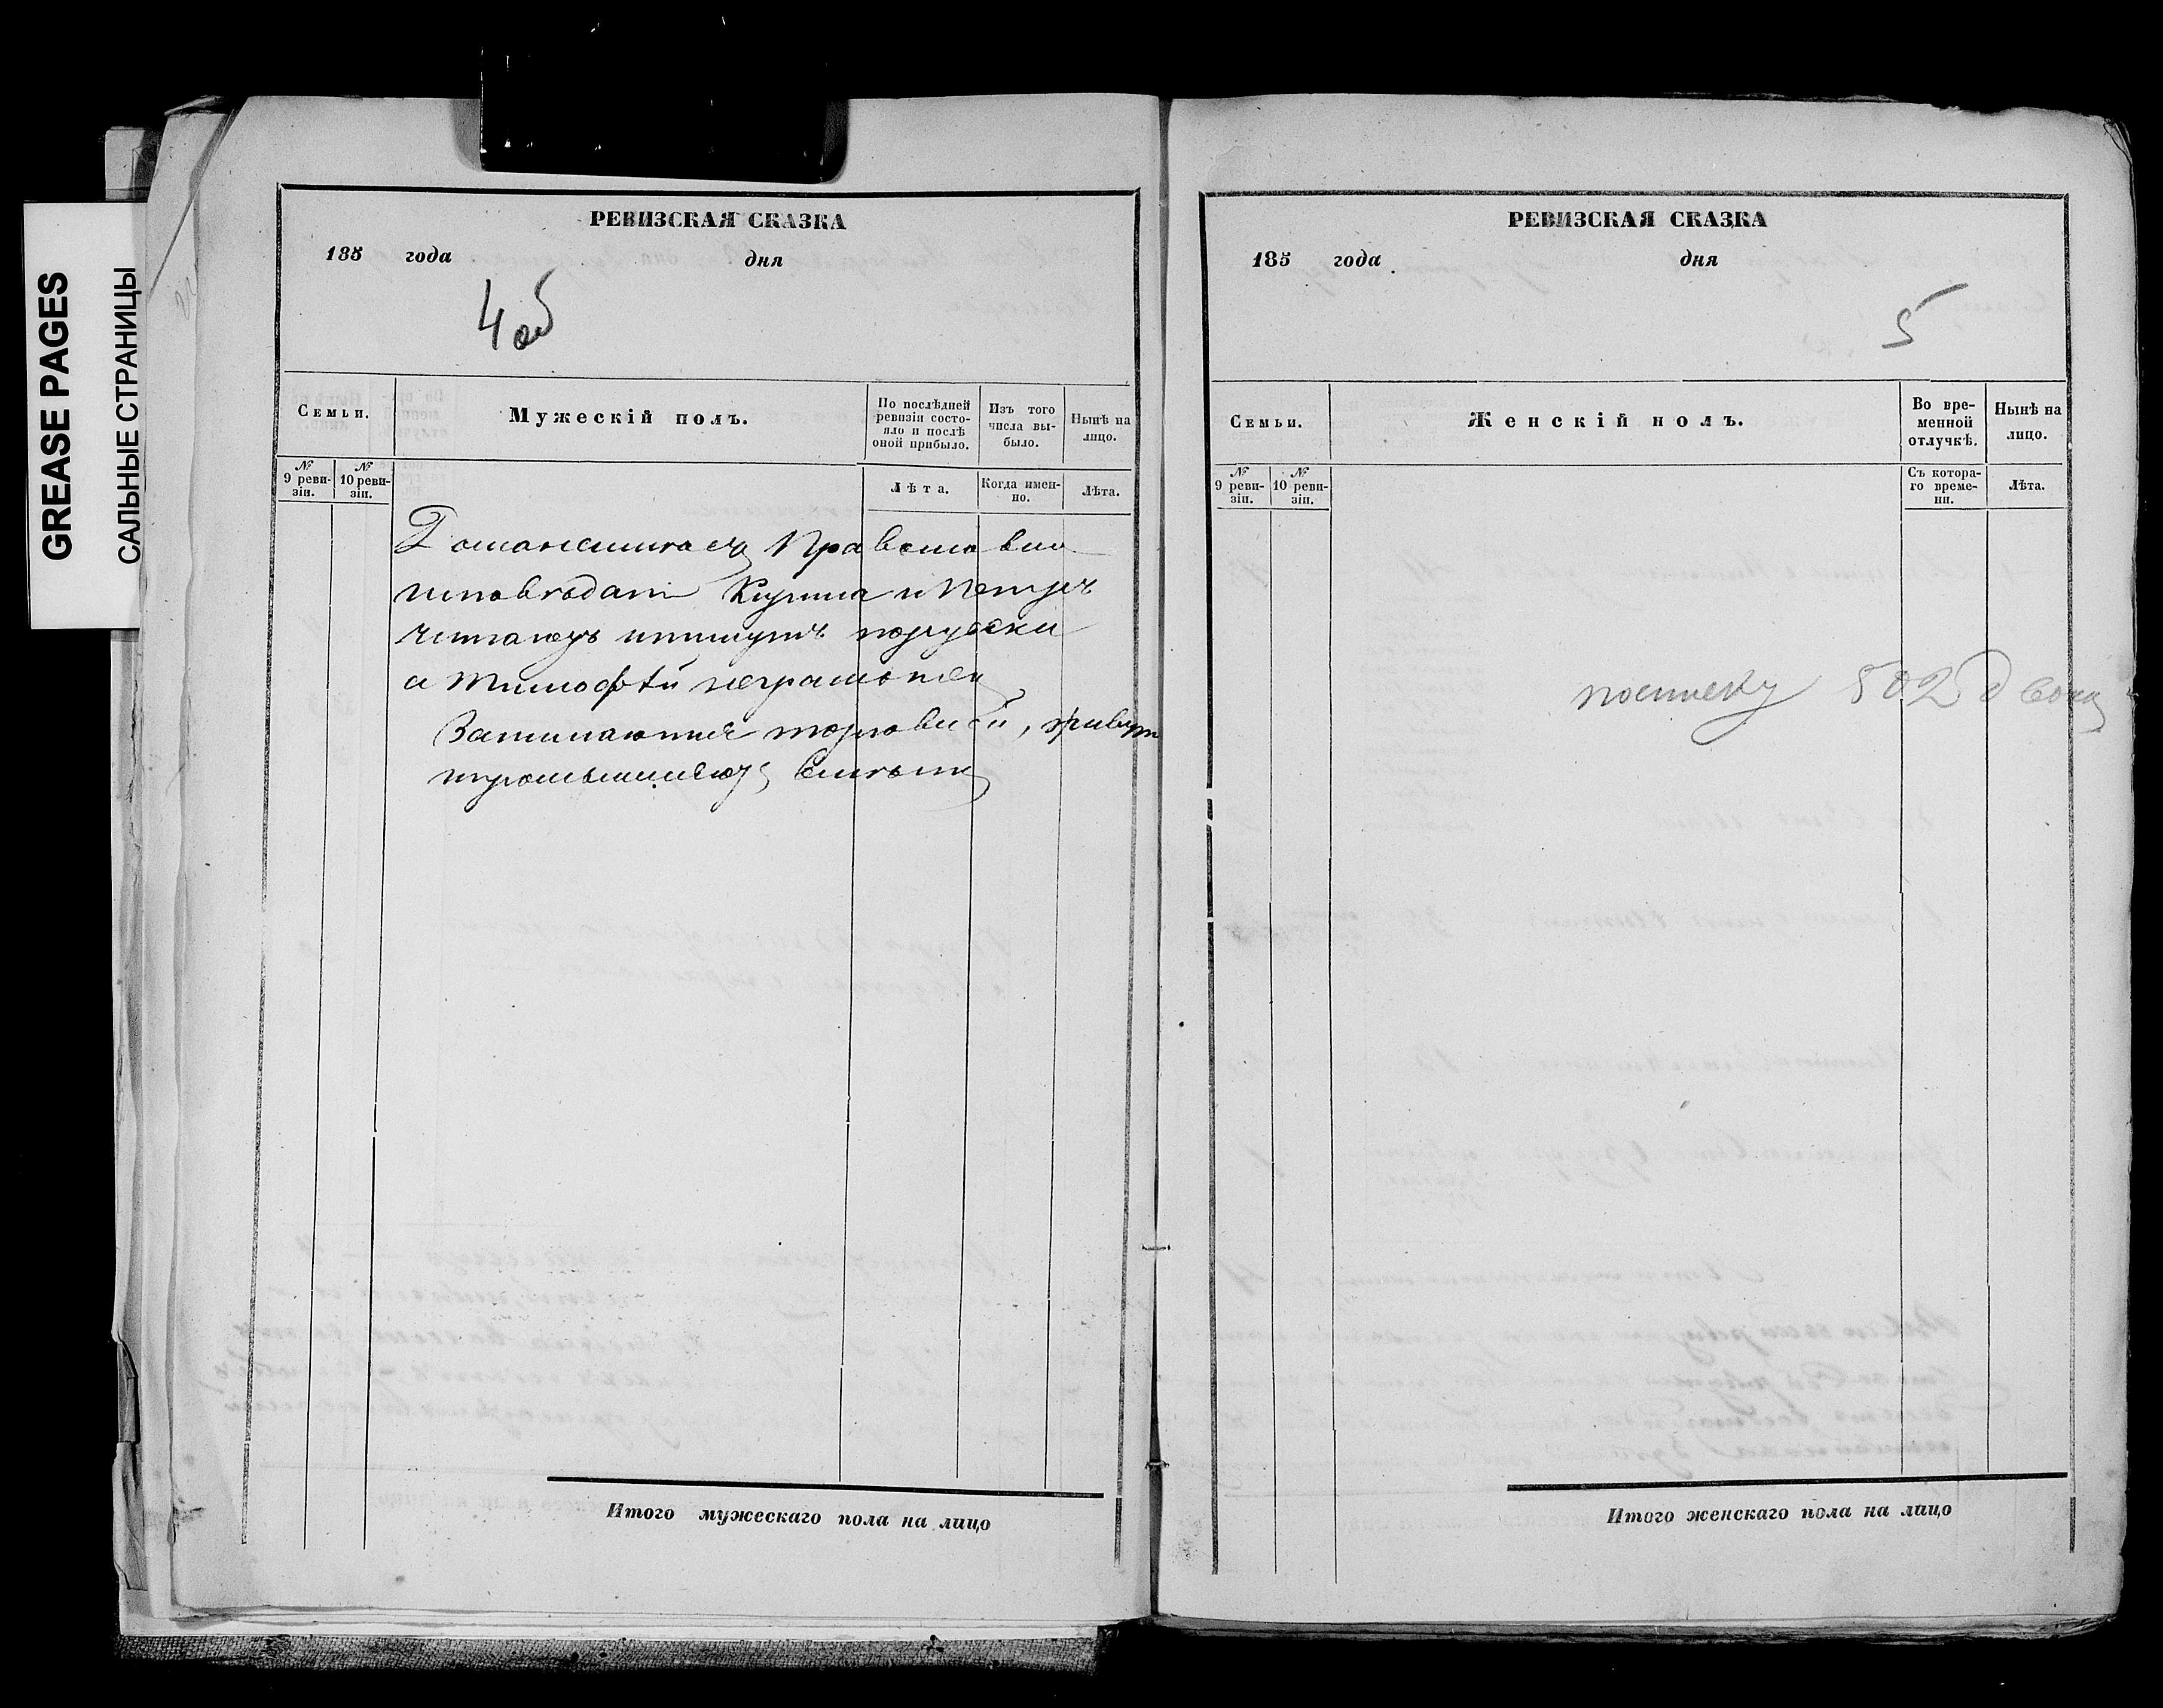 GREASE PAGES
САЛЬНЫЕ СТРАНИЦЫ
РЕВИЗСКАЯ СКАЗКА
185 года дня
4 об
Семьи.
Мужескій полъ.
По послѣдней ревизіи состояло и послѣ оной прибыло.
Изъ того числа выбыло.
Нынѣ на лицо.
№ 9 ревизіи.
№ 10 ревизіи.
Лѣта.
Когда именно.
Лѣта.
Православно
исповедани Кирила и Петръ
читаютъ ипишутъ порусски
а Тимофѣй неграмотен
Занимаются торговлей, живут
Итого мужескаго пола на лицо
РЕВИЗСКАЯ СКАЗКА
185 года дня
5
Семьи.
Женскій полъ.
Во временной отлучкѣ.
Нынѣ на лицо.
№ 9 ревизіи.
№ 10 ревизіи.
Съ котораго времени.
Лѣта.
посписку 502
Итого женскаго пола на лицо